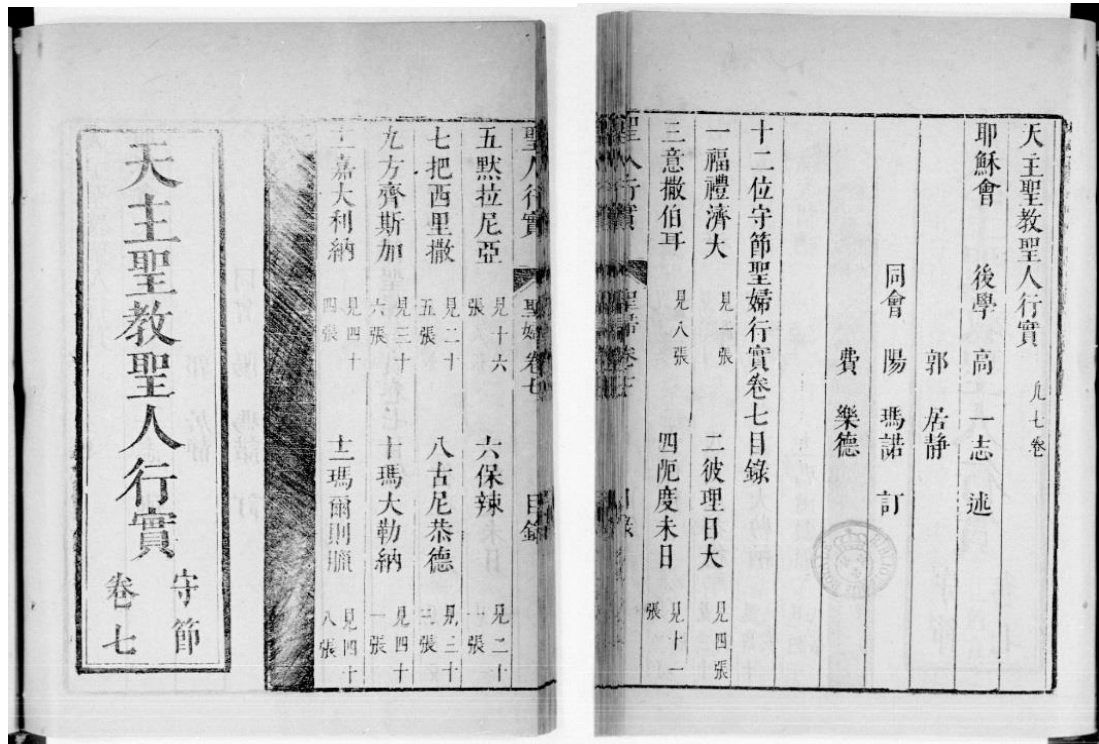 天主聖教聖人行實 凡七卷
耶穌會 後學 高一志 述
郭居静
同會 陽瑪諾 訂
費樂德
十二位守節聖婦行實卷七目錄
一福禮濟大 見一張 二彼理日大 見四張
三意撒伯耳 見八張 四阨度未日 見十一張
聖人行實 聖婦卷七 目錄
聖人行實 聖婦卷七 目錄
五默拉尼亞 見十六張 六保辣 見二十張
七把西里撒 見二十五張 八古尼恭德 見三十二張
九方齊斯加 見三十六張 十瑪大勒納 見四十一張
十一嘉大利納 見四十四張 十二瑪爾則臘 見四十八張
天主聖教聖人行實
守節
卷七